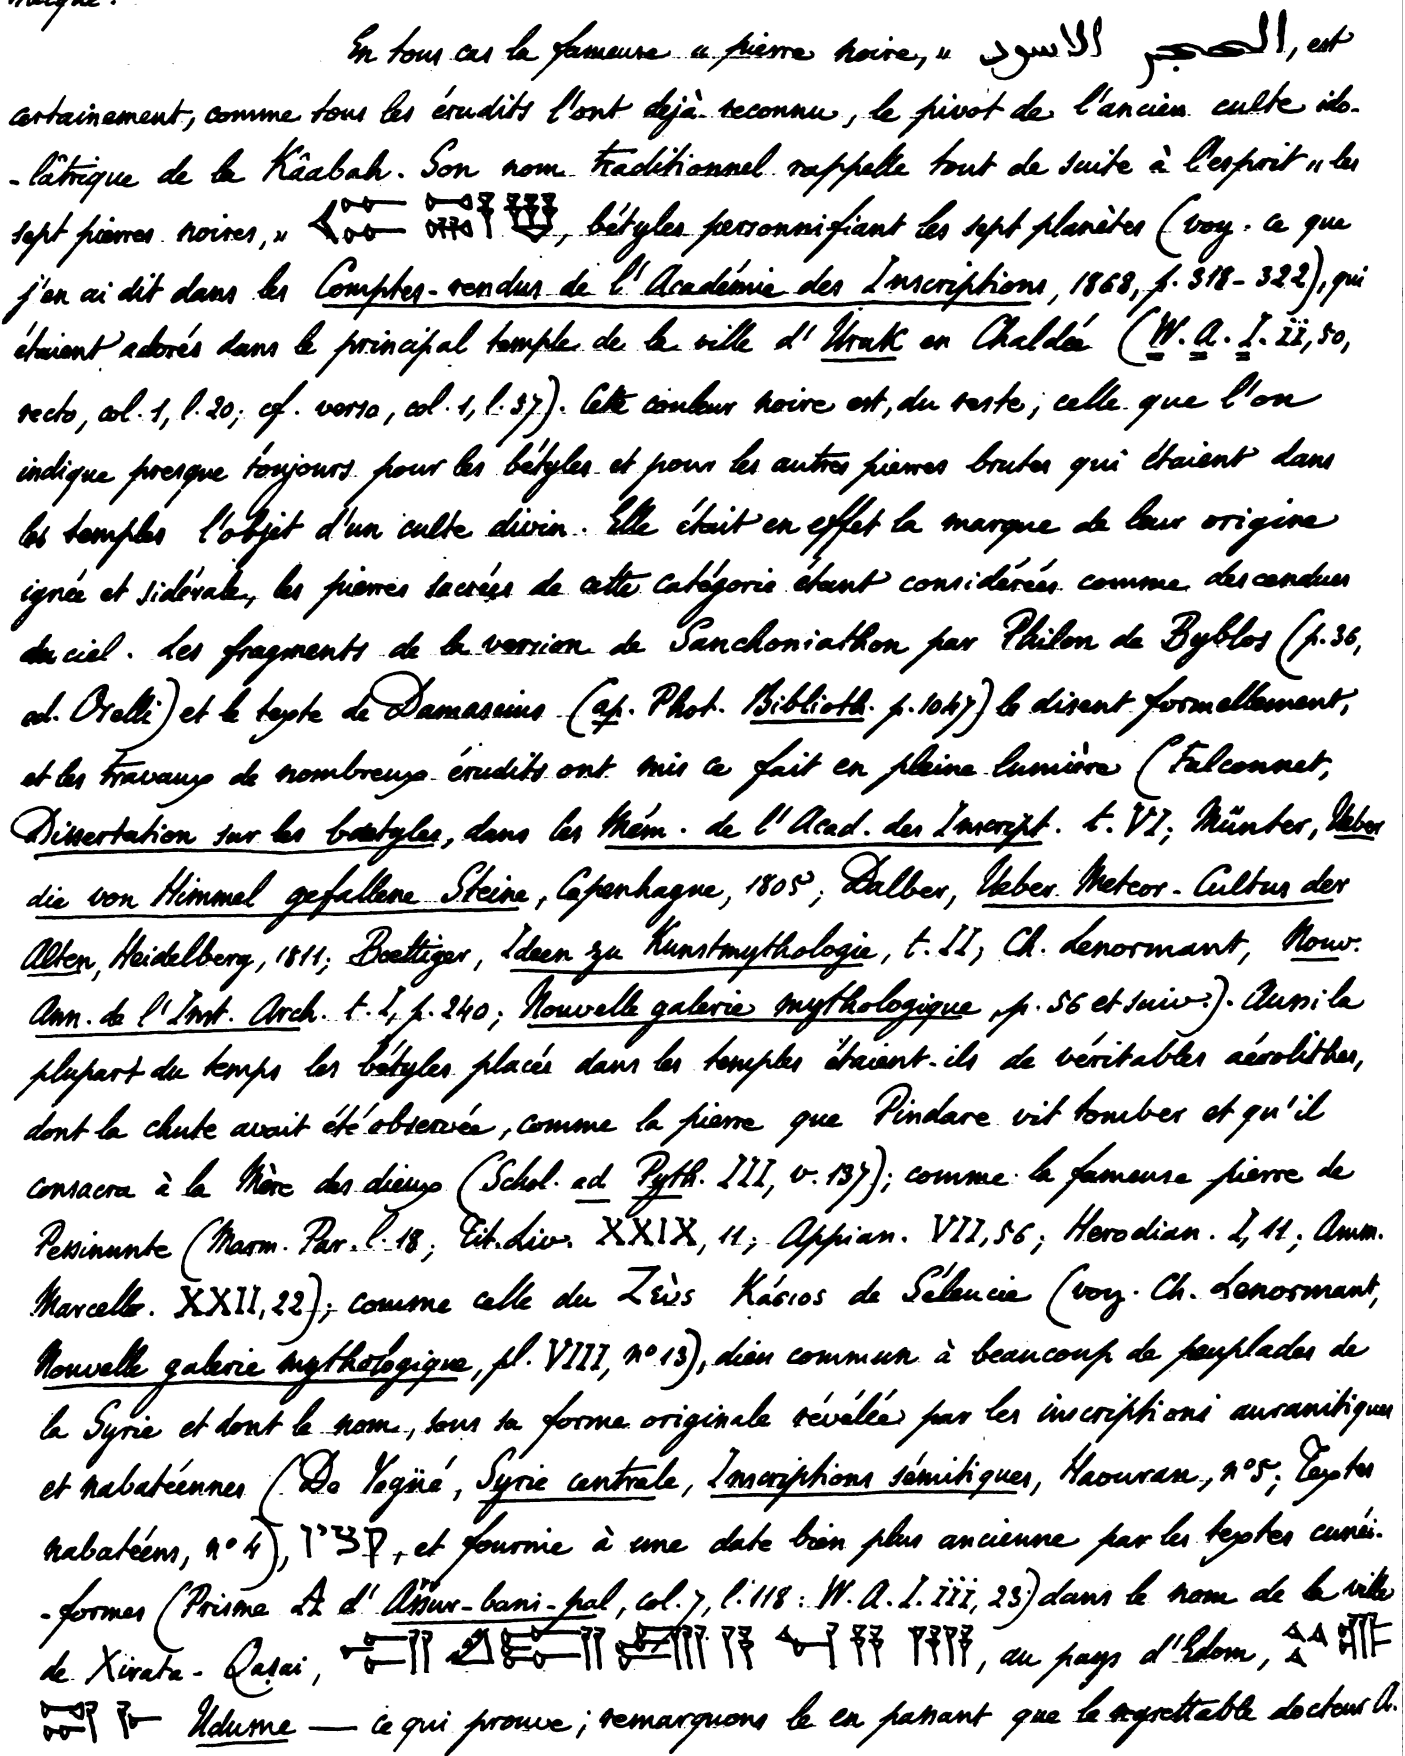 En tous cas la fameuse « pierre noire, » الحجر الاسود, est
certainement, comme tous les érudits l'ont déjà reconnu, le pivot de l'ancien culte ido-
-lâtrique de la Kâabah. Son nom traditionnel rappelle tout de suite à l'esprit « les
sept pierres noires, » , bétyles personnifiant les sept planètes (voy. ce que
j'en ai dit dans les Comptes-rendus de l'Académie des Inscriptions, 1868, p. 318-322), qui
étaient adorés dans le principal temple de la ville d'Uruk en Chaldée (W. A. I. ii, 50,
recto, col. 1, l. 20; cf. verso, col. 1, l. 37). Cette couleur noire est, du reste, celle que l'on
indique presque toujours pour les bétyles et pour les autres pierres brutes qui étaient dans
les temples l'objet d'un culte divin. Elle était en effet la marque de leur origine
ignée et sidérale, les pierres sacrées de cette catégorie étant considérées comme descendues
du ciel. Les fragments de la version de Sanchoniathon par Philon de Byblos (p. 36,
ed. Orelli) et le texte de Damascius (ap. Phot. Biblioth. p. 1047) le disent formellement,
et les travaux de nombreux érudits ont mis ce fait en pleine lumière (Falconnet,
Dissertation sur les bætyles, dans les Mém. de l'Acad. des Inscript. t. VI; Münter, Ueber
die von Himmel gefallene Steine, Copenhague, 1805; Dalber, Ueber Meteor-Cultus der
Alten, Heidelberg, 1811; Bœttiger, Ideen zu Kunstmythologie, t. II; Ch. Lenormant, Nouv.
Ann. de l'Inst. Arch. t. I, p. 240; Nouvelle galerie mythologique, p. 56 et suiv.). Aussi la
plupart du temps les bétyles placés dans les temples étaient-ils de véritables aérolithes,
dont la chute avait été observée, comme la pierre que Pindare vit tomber et qu'il
consacra à la Mère des dieux (Schol. ad Pyth. III, v. 137); comme la fameuse pierre de
Pessinunte (Marm. Par. l. 18; Tit. Liv. XXIX, 11; Appian. VII, 56; Herodian. I, 11; Amm.
Marcell. XXII, 22); comme celle du Ζεὺς Κάσιος de Séleucie (voy. Ch. Lenormant,
Nouvelle galerie mythologique, pl. VIII, nº 13), dieu commun à beaucoup de peuplades de
la Syrie et dont le nom, sous sa forme originale révélée par les inscriptions auranitiques
et nabatéennes (De Vogüé, Syrie centrale, Inscriptions sémitiques, Haouran, nº 5; Textes
nabatéens, nº 4), קציו, et fournie à une date bien plus ancienne par les textes cunéi-
-formes (Prisme A d'Assur-bani-pal, col. 7, l. 118: W. A. I. iii, 23) dans le nom de la ville
de Xirata-Qaṣai, , au pays d'Edom,
Udume — ce qui prouve, remarquons le en passant que le regrettable docteur A.